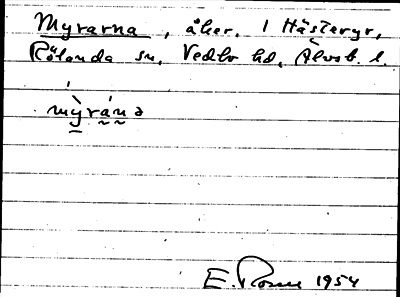 Myrarna, åker, 1 Hästeryr,
Rölanda sn, Vedbo hd, Älvsb. l.
mỳránə
E. Rosén 1954